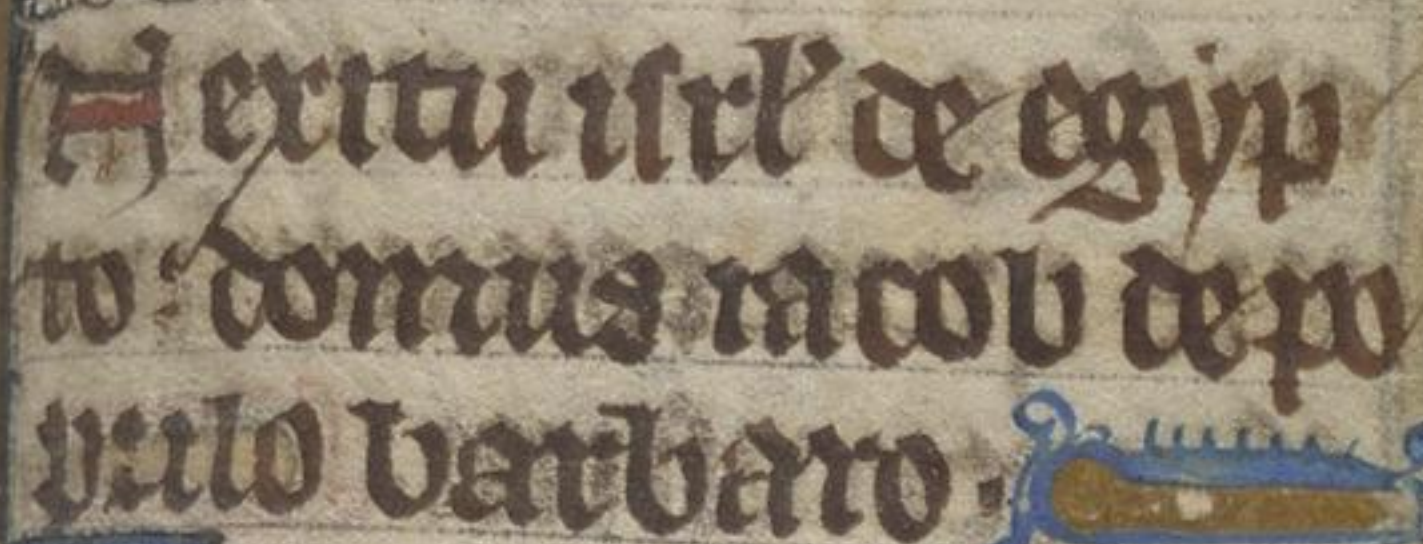 N exitu isrl' de egyp
to : domus iacob de po
pulo barbaro .